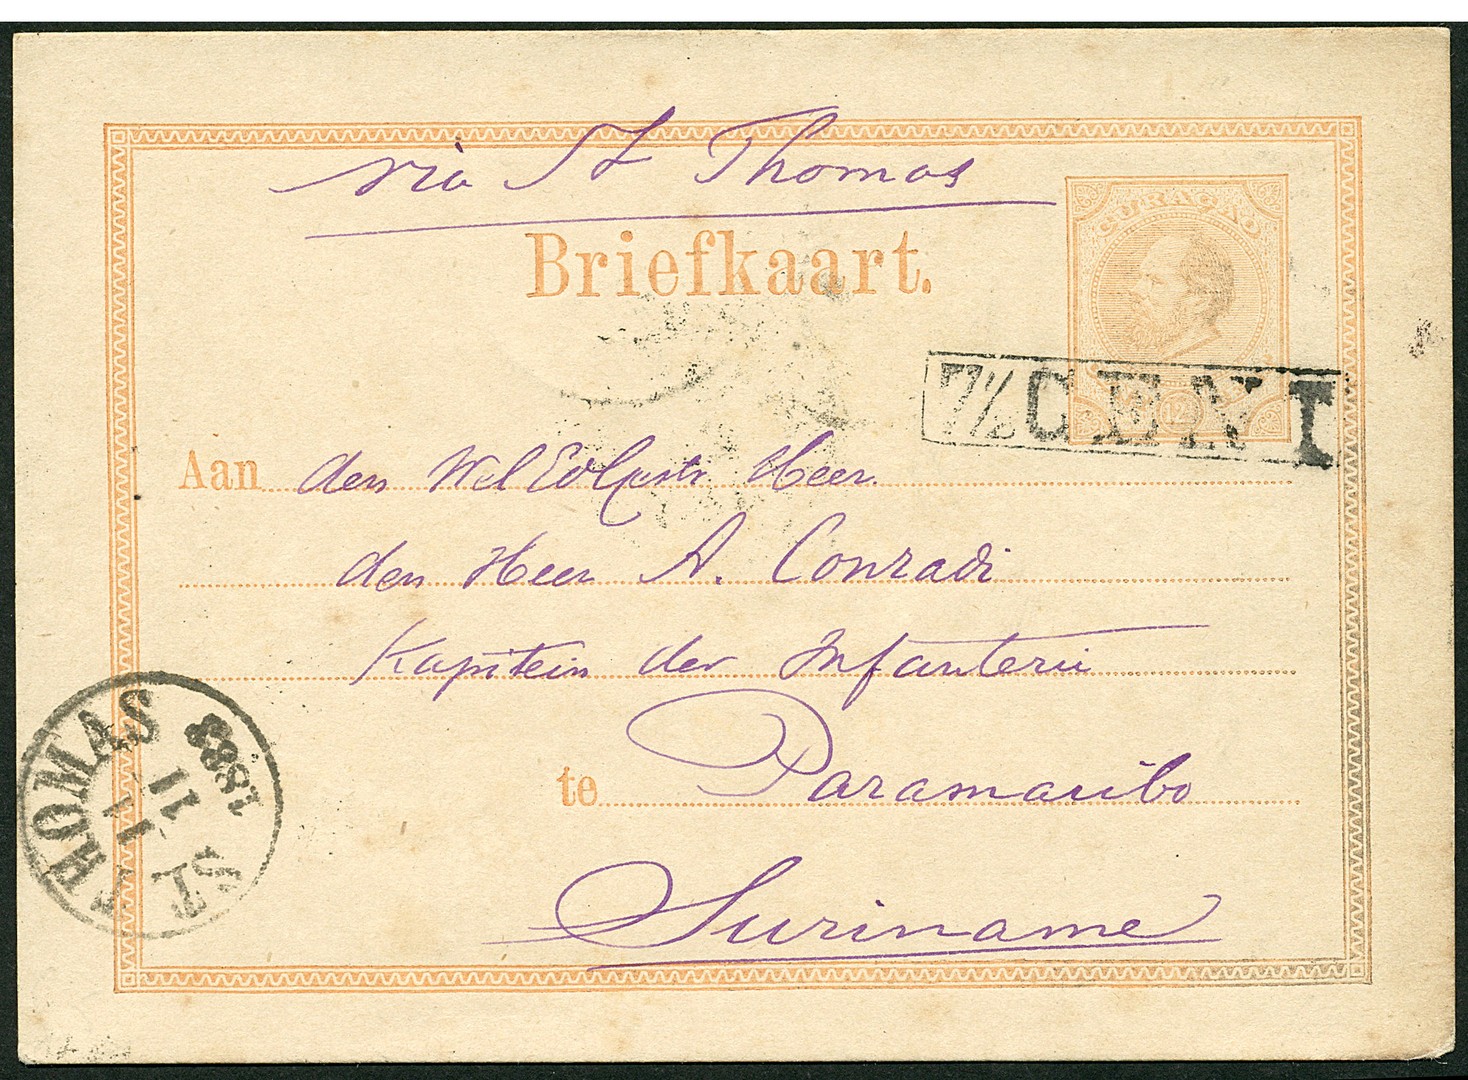 via St Thomas
Briefkaart.
CURAÇAO
7½ CENT
12½
Aan den Wel Ed Gestr Heer
den Heer A. Conradi
Kapitein der Infanterie
te Paramaribo
Suriname
ST. THOMAS
11
11
1883